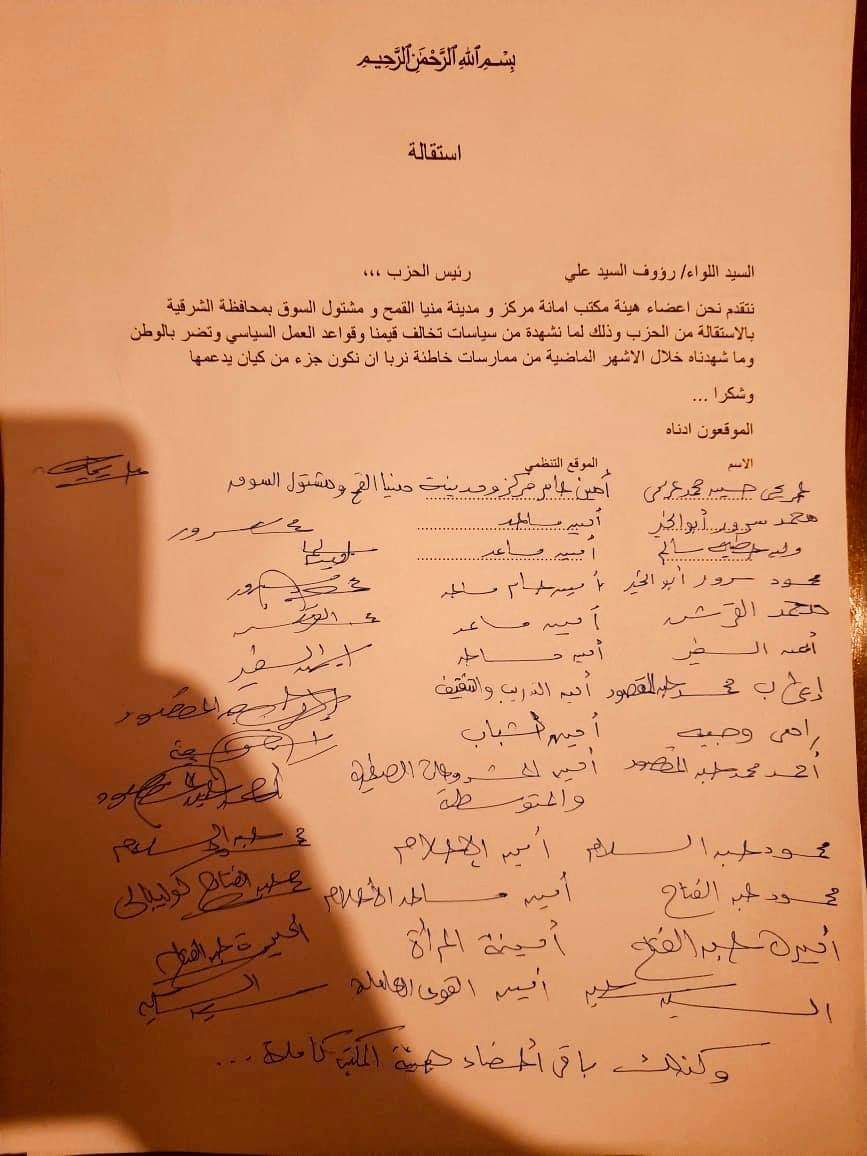 بسم الله الرحمن الرحيم
استقالة
السيد اللواء/ رؤوف السيد علي رئيس الحزب ،،،
نتقدم نحن اعضاء هيئة مكتب امانة مركز و مدينة منيا القمح و مشتول السوق بمحافظة الشرقية
بالاستقالة من الحزب وذلك لما نشهدة من سياسات تخالف قيمنا وقواعد العمل السياسي وتضر بالوطن
وما شهدناه خلال الاشهر الماضية من ممارسات خاطئة نربا ان نكون جزء من كيان يدعمها
وشكرا ...
الموقعون ادناه
الاسم الموقع التنظمي
حسين محمد أمين عام مركز ومدينة منيا القمح ومشتول السوق
محمد سرور أبو الخير أمين مساعد
سالم أمين مساعد
محمود سرور أبو الخير أمين عام مساعد
محمد القرشى أمين مساعد
أمين مساعد
محمد عبد المقصود أمين التدريب والتثقيف
رامى وجيه أمين الشباب
أحمد محمد عبد المقصود أمين المشروعات الصغيرة
والمتوسطة
محمود عبد السلام أمين الإعلام محمود عبد السلام
محمود عبد الفتاح أمين مساعد الأعلام
أميرة عبد الفتاح أمينة المرأة
السيد أمين القوى العاملة
وكذلك باقى أعضاء هيئة المكتب كاملة ...